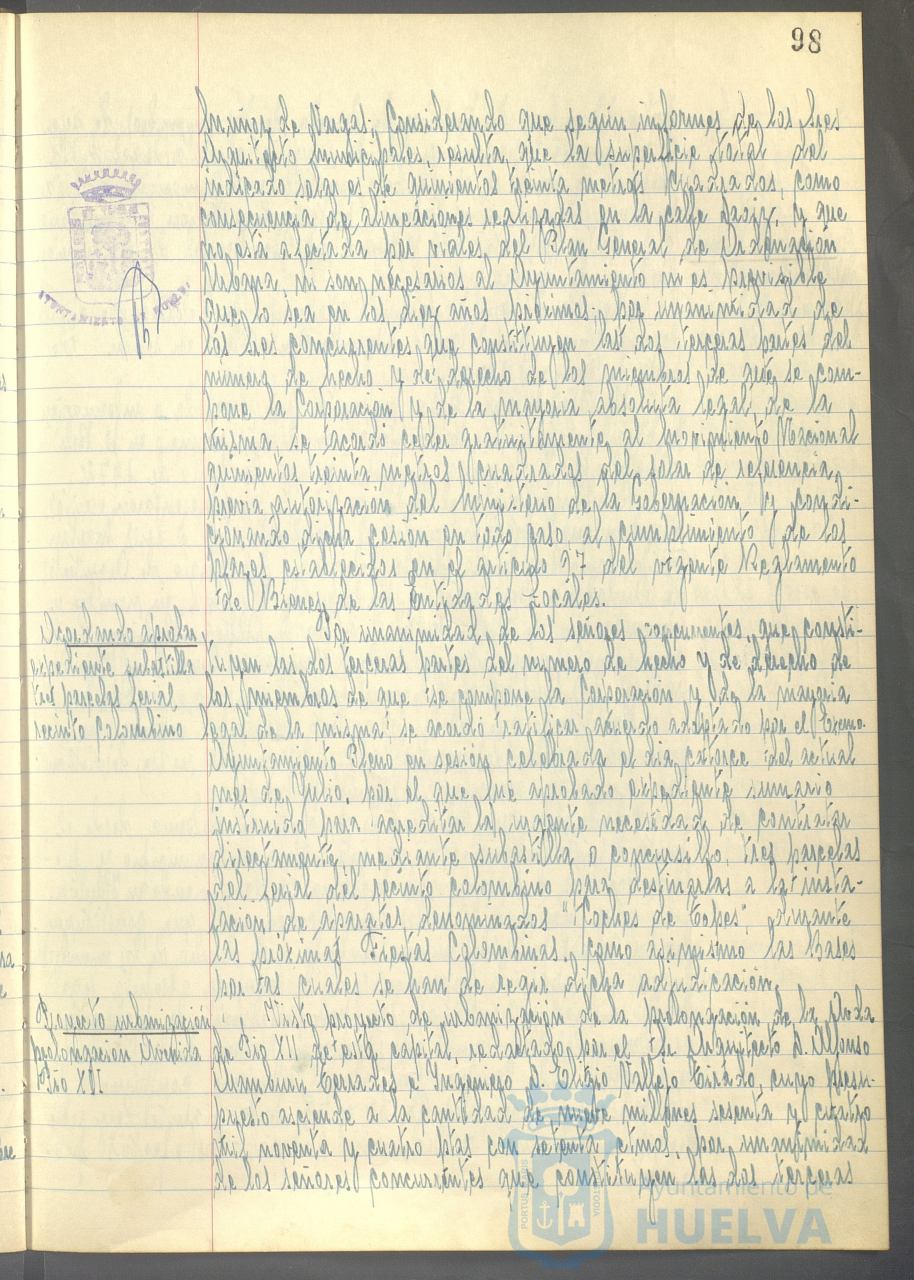 98
Muñoz de Vargas; Considerando que según informes de los Sres
Arquitecto Municipales, resulta, que la superficie total del
indicado solar es de quinientos treinta metros cuadrados, como
consecuencia de alineaciones realizadas en la calle y que
no está afectada por viales del Plan General de Ordenación
Urbana, ni son necesarios al Ayuntamiento ni es previsible
que lo sea en los diez años próximos; por unanimidad de
los Sres concurrentes que constituyen las dos terceras partes del
número de hecho y de derecho de los miembros de que se com-
pone la Corporación y de la mayoría absoluta legal de la
misma, se acordó ceder gratuitamente al Movimiento Nacional
quinientos treinta metros cuadrados del solar de referencia,
previa autorización del Ministerio de la Gobernación y condi-
cionando dicha cesión en todo caso, al cumplimiento de los
plazos establecidos en el artículo 97 del vigente Reglamento
de Bienes de las Entidades Locales.
Acordando aprobar
expediente subastilla
tres parcelas ferial
recinto Colombino
Por unanimidad de los señores concurrentes que consti-
tuyen las dos terceras partes del número de hecho y de derecho de
los miembros de que se compone la Corporación y de la mayoría
legal de la misma se acordó ratificar acuerdo adoptado por el Excmo
Ayuntamiento Pleno en sesión celebrada el día catorce del actual
mes de Julio, por el que fué aprobado expediente sumario
instruido para acreditar la urgente necesidad de contratar
directamente, mediante subastilla o concursillo, tres parcelas
del ferial del recinto colombino para destinarlas a la insta-
lación de aparatos denominados "Coches de Topes", durante
las próximas Fiestas Colombinas, como asimismo las Bases
por las cuales se han de regir dicha adjudicación.
Proyecto urbanización
prolongación Avenida
Pío XII
Visto proyecto de urbanización de la prolongación de la Avda
de Pío XII de esta capital, redactado por el Sr Arquitecto D. Alfonso
Aramburu Terrades e Ingeniero D. Eligio Vallejo Tirado, cuyo presu-
puesto asciende a la cantidad de nueve millones sesenta y cuatro
mil noventa y cuatro ptas con setenta ctmos, por unanimidad
de los señores concurrentes que constituyen las dos terceras
Ayuntamiento de
HUELVA